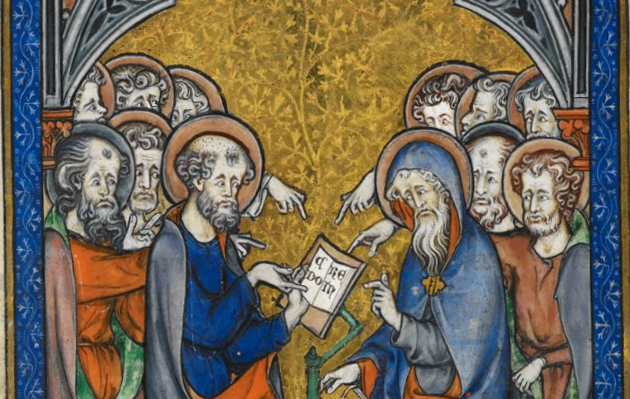 CRE
DO IN